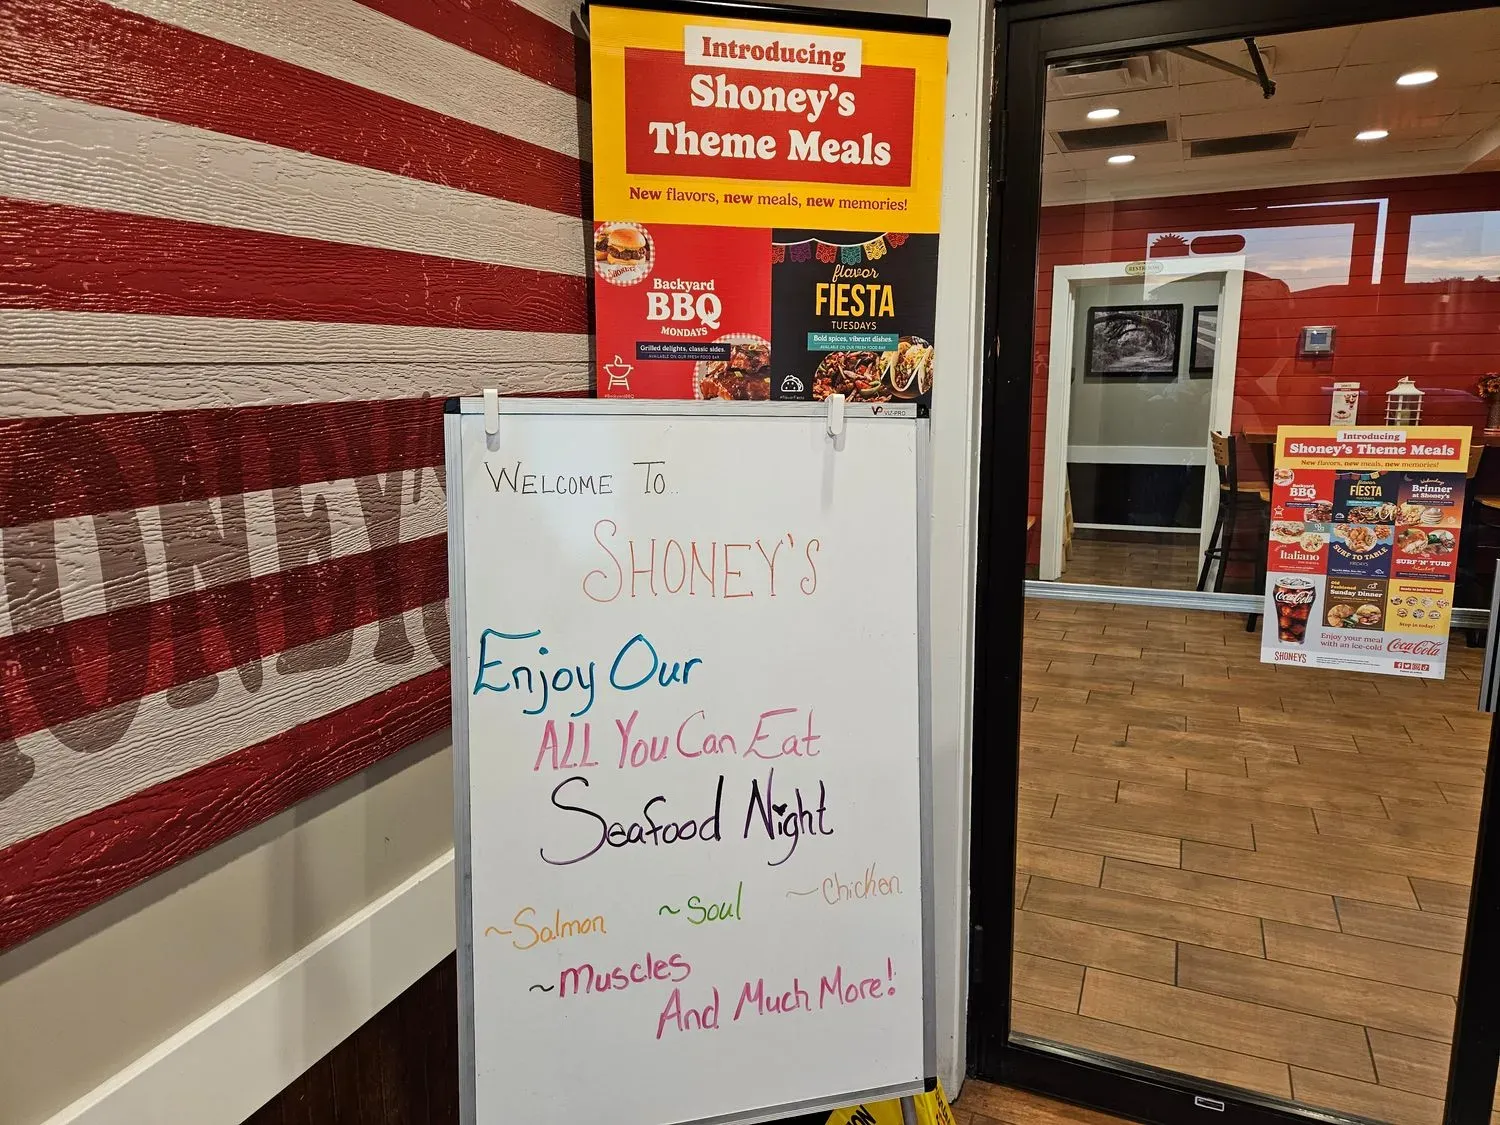 Introducing
Shoney's
Theme Meals
New flavors, new meals, new memories!
Backyard
BBQ
MONDAYS
Grilled delights, classic sides.
AVAILABLE ON OUR FRESH FOOD BAR
#BackyardBBQ
flavor
FIESTA
TUESDAYS
Bold spices, vibrant dishes.
AVAILABLE ON OUR FRESH FOOD BAR
#flavorFiesta
VIZ-PRO
WELCOME TO..
SHONEY'S
Enjoy Our
ALL You Can Eat
Seafood Night
~Salmon ~Soul ~Chicken
~Muscles
And Much More!
ONEY'S
RESTROOM
Introducing
Shoney's Theme Meals
New flavors, new meals, new memories!
Backyard
BBQ
MONDAYS
flavor
FIESTA
Brinner
at Shoney's
Italiano
SURF TO TABLE
FRIDAYS
SURF 'N' TURF
Old
Fashioned
Sunday Dinner
Stop in today!
Coca-Cola
Enjoy your meal
with an ice-cold
Coca-Cola
SHONEYS